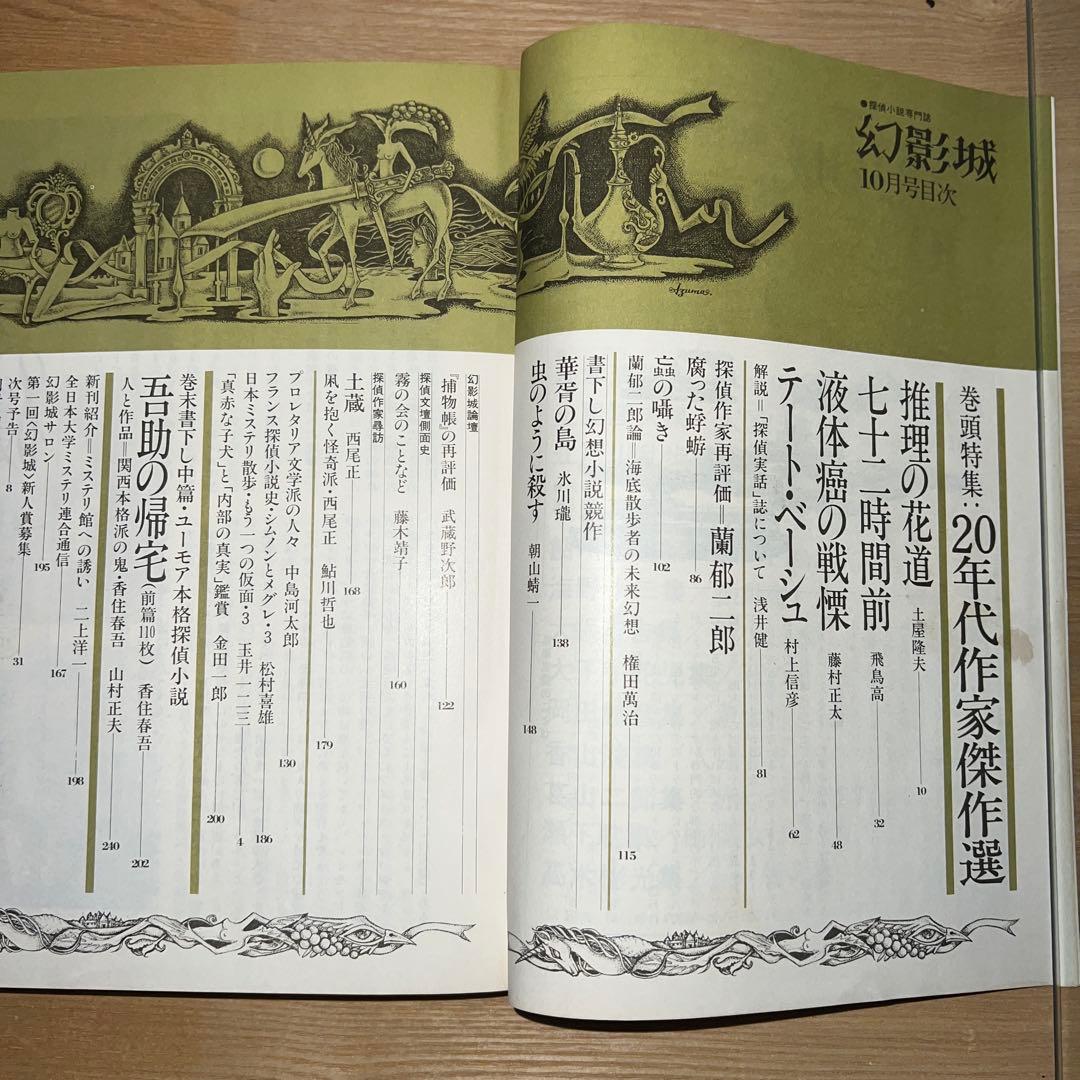 ●探偵小説専門誌
幻影城
10月号目次
Azuma.
巻頭特集:20年代作家傑作選
推理の花道 土屋隆夫 10
七十二時間前 飛鳥高 32
液体癌の戦慄 藤村正太 48
テート・ベーシュ 村上信彦 62
解説=「探偵実話」誌について 浅井健 81
探偵作家再評価=蘭郁二郎
腐った蜉蝣 86
蝱の囁き 102
蘭郁二郎論=海底散歩者の未来幻想 権田萬治 115
書下し幻想小説競作
華胥の島 氷川瓏 138
虫のように殺す 朝山蜻一 148
幻影城論壇
『捕物帳』の再評価 武蔵野次郎 122
探偵文壇側面史
霧の会のことなど 藤木靖子 160
探偵作家尋訪
土蔵 西尾正 168
凩を抱く怪奇派・西尾正 鮎川哲也 179
プロレタリア文学派の人々 中島河太郎 130
フランス探偵小説史・シムノンとメグレ・3 松村喜雄 186
日本ミステリ散歩・もう一つの仮面・3 玉井一二三 4
「真赤な子犬」と「内部の真実」鑑賞 金田一郎 200
巻末書下し中篇・ユーモア本格探偵小説
吾助の帰宅(前篇110枚) 香住春吾 202
人と作品=関西本格派の鬼・香住春吾 山村正夫 240
新刊紹介=ミステリ館への誘い 二上洋一 198
全日本大学ミステリ連合通信 167
幻影城サロン 195
第一回〈幻影城〉新人賞募集 31
次号予告 8